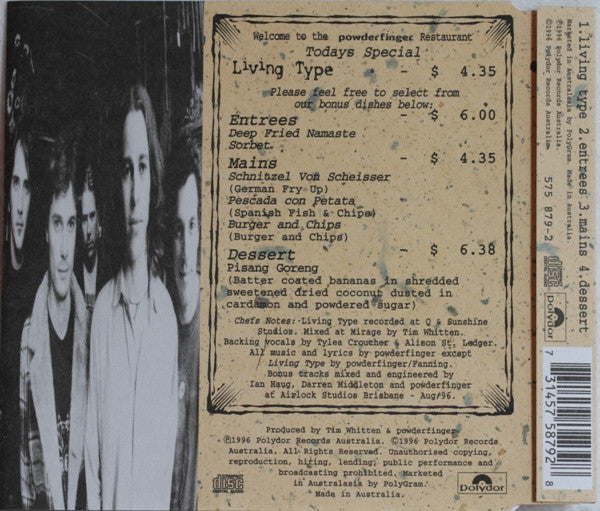 Welcome to the powderfinger Restaurant
Todays Special
Living Type - $ 4.35
Please feel free to select from
our bonus dishes below:
Entrees - $ 6.00
Deep Fried Namaste
Sorbet
Mains - $ 4.35
Schnitzel Von Scheisser
(German Fry Up)
Pescada con Petata
(Spanish Fish & Chips)
Burger and Chips
(Burger and Chips)
Dessert - $ 6.38
Pisang Goreng
(Batter coated bananas in shredded
sweetened dried coconut dusted in
cardamon and powdered sugar)
Chefs Notes: Living Type recorded at Q & Sunshine
Studios. Mixed at Mirage by Tim Whitten.
Backing vocals by Tylea Croucher & Alison St. Ledger.
All music and lyrics by powderfinger except
Living Type by powderfinger/Fanning.
Bonus tracks mixed and engineered by
Ian Haug, Darren Middleton and powderfinger
at Airlock Studios Brisbane - Aug '96.
Produced by Tim Whitten & powderfinger
℗1996 Polydor Records Australia. ©1996 Polydor Records
Australia. All Rights Reserved. Unauthorised copying,
reproduction, hiring, lending, public performance and
broadcasting prohibited. Marketed
in Australasia by PolyGram.
Made in Australia.
COMPACT disc DIGITAL AUDIO
Polydor
1.living type 2.entrees 3.mains 4.dessert
Marketed in Australasia by PolyGram. Made in Australia.
℗1996 Polydor Records Australia.
©1996 Polydor Records Australia.
575 879-2
disc
Polydor
7 31457 58792 8